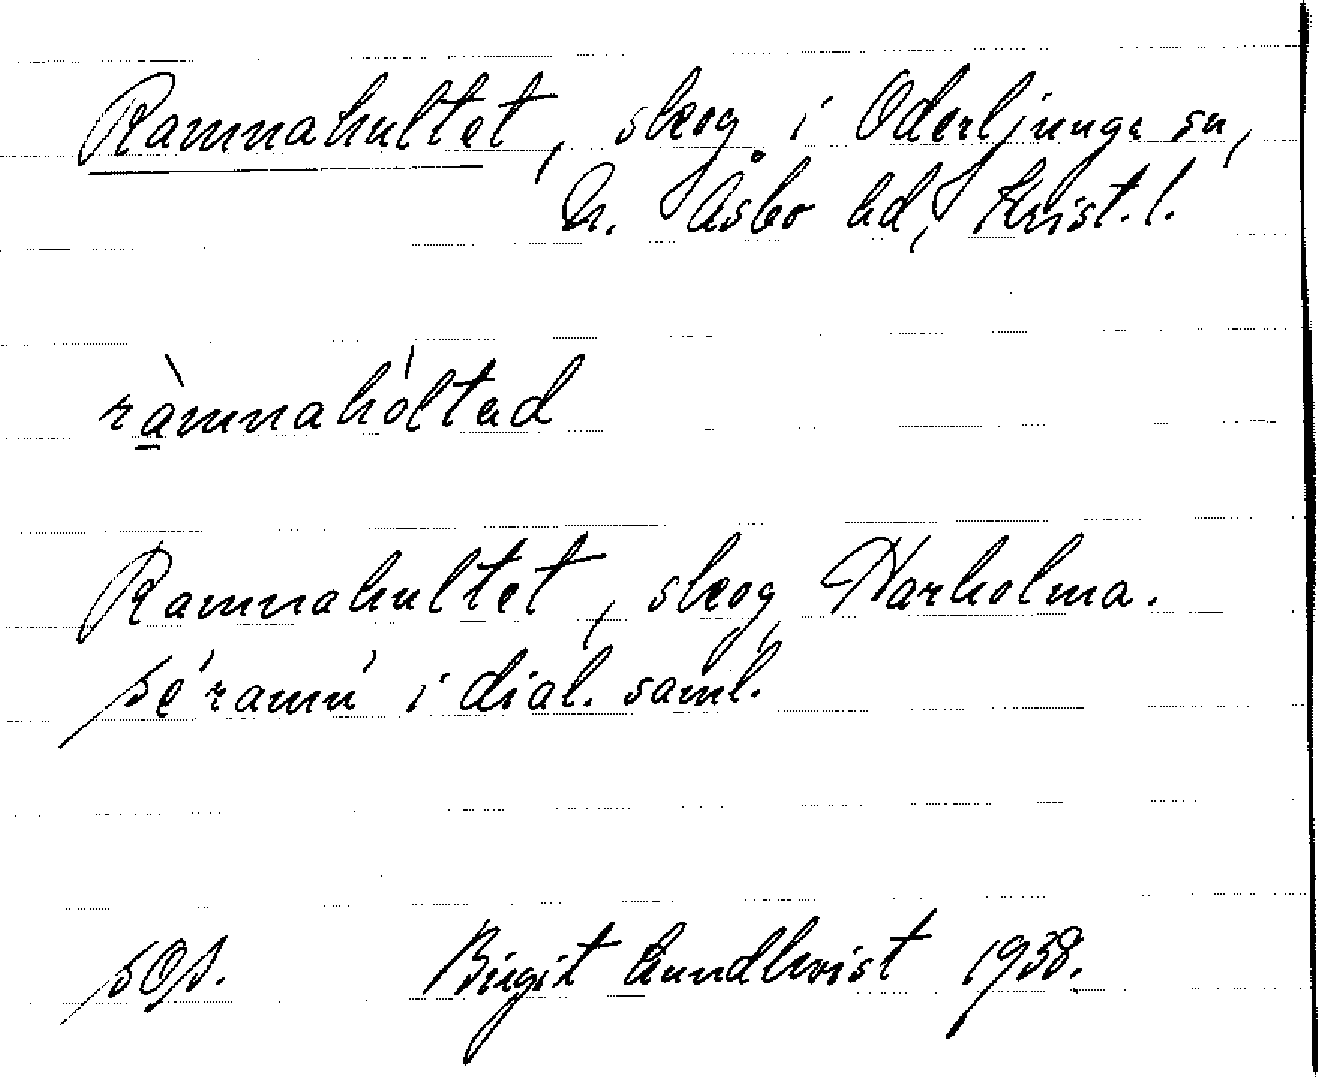 Ramnahultet, skog i Oderljunga sn,
N. Åsbo hd, Krist. l.
ràmnahóltad
Ramnahultet, skog, Harholma.
Se ramn i dial. saml.
Birgit Lundkvist 1938.